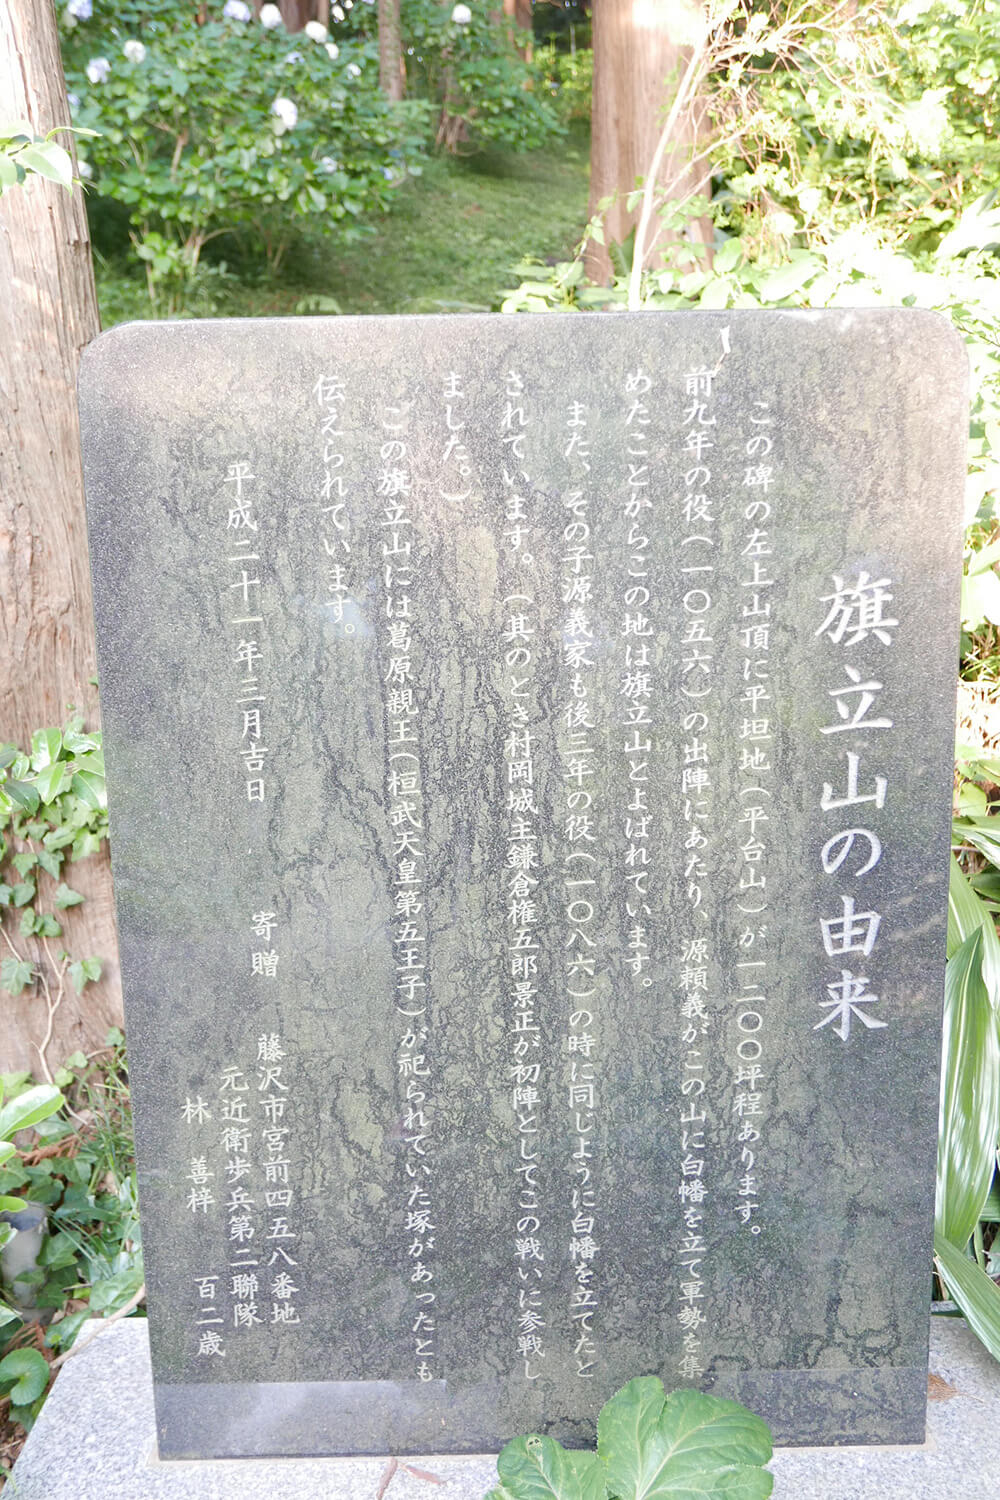 旗立山の由来
この碑の左上山頂に平坦地(平台山)が一二〇〇坪程あります。
前九年の役(一〇五六)の出陣にあたり、源頼義がこの山に白幡を立て軍勢を集
めたことからこの地は旗立山とよばれています。
また、その子源義家も後三年の役(一〇八六)の時に同じように白幡を立てたと
されています。(其のとき村岡城主鎌倉権五郎景正が初陣としてこの戦いに参戦し
ました。)
この旗立山には葛原親王(桓武天皇第五王子)が祀られていた塚があったとも
伝えられています。
平成二十一年三月吉日
寄贈 藤沢市宮前四五八番地
元近衛歩兵第二聯隊
林 善梓 百二歳